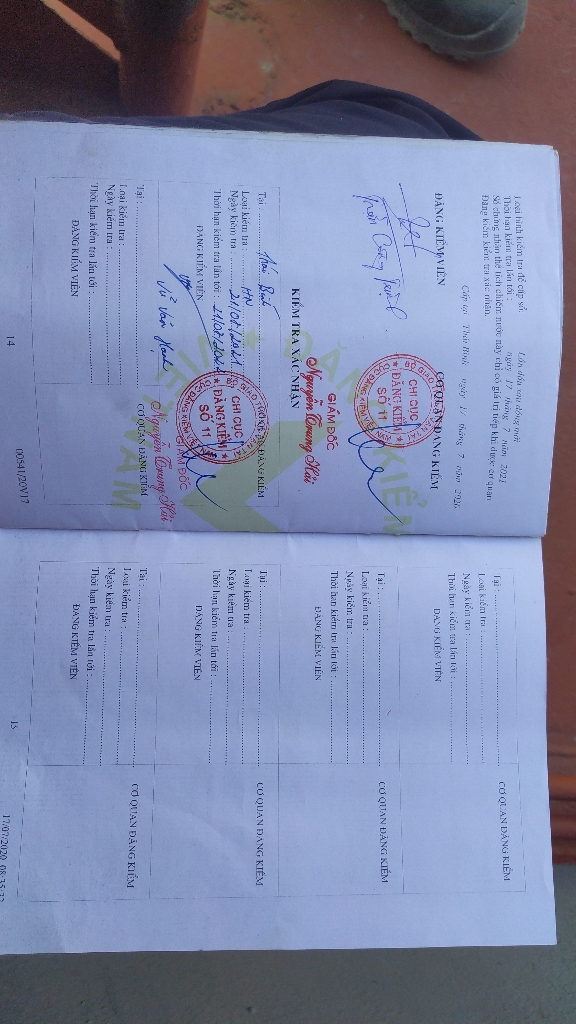 Loại hình kiểm tra để cấp sổ: Lần đầu sau đóng mới
Thời hạn kiểm tra lần tới: ngày 17 tháng 7 năm 2021
Số chứng nhận thể tích chiếm nước này chỉ có giá trị tiếp khi được cơ quan
Đăng kiểm kiểm tra xác nhận.
Cấp tại Thái Bình ngày 17 tháng 7 năm 2020
ĐĂNG KIỂM VIÊN
CƠ QUAN ĐĂNG KIỂM
CHI CỤC
ĐĂNG KIỂM
SỐ 11
GIÁM ĐỐC
Nguyễn Trung Hải
KIỂM TRA XÁC NHẬN
Tại : Thái Bình
Loại kiểm tra : HN
Ngày kiểm tra : 21/07/2021
Thời hạn kiểm tra lần tới : 21/07/2022
ĐĂNG KIỂM VIÊN
CƠ QUAN ĐĂNG KIỂM
Vũ Văn Hạnh
CHI CỤC
ĐĂNG KIỂM
SỐ 11
GIÁM ĐỐC
Nguyễn Trung Hải
Tại :
Loại kiểm tra :
Ngày kiểm tra :
Thời hạn kiểm tra lần tới :
ĐĂNG KIỂM VIÊN
CƠ QUAN ĐĂNG KIỂM
ĐĂNG KIỂM
VIỆT NAM
14
00541/20V17
Tại :
Loại kiểm tra :
Ngày kiểm tra :
Thời hạn kiểm tra lần tới :
ĐĂNG KIỂM VIÊN
CƠ QUAN ĐĂNG KIỂM
Tại :
Loại kiểm tra :
Ngày kiểm tra :
Thời hạn kiểm tra lần tới :
ĐĂNG KIỂM VIÊN
CƠ QUAN ĐĂNG KIỂM
Tại :
Loại kiểm tra :
Ngày kiểm tra :
Thời hạn kiểm tra lần tới :
ĐĂNG KIỂM VIÊN
CƠ QUAN ĐĂNG KIỂM
Tại :
Loại kiểm tra :
Ngày kiểm tra :
Thời hạn kiểm tra lần tới :
ĐĂNG KIỂM VIÊN
CƠ QUAN ĐĂNG KIỂM
15
17/07/2020 08:35:32